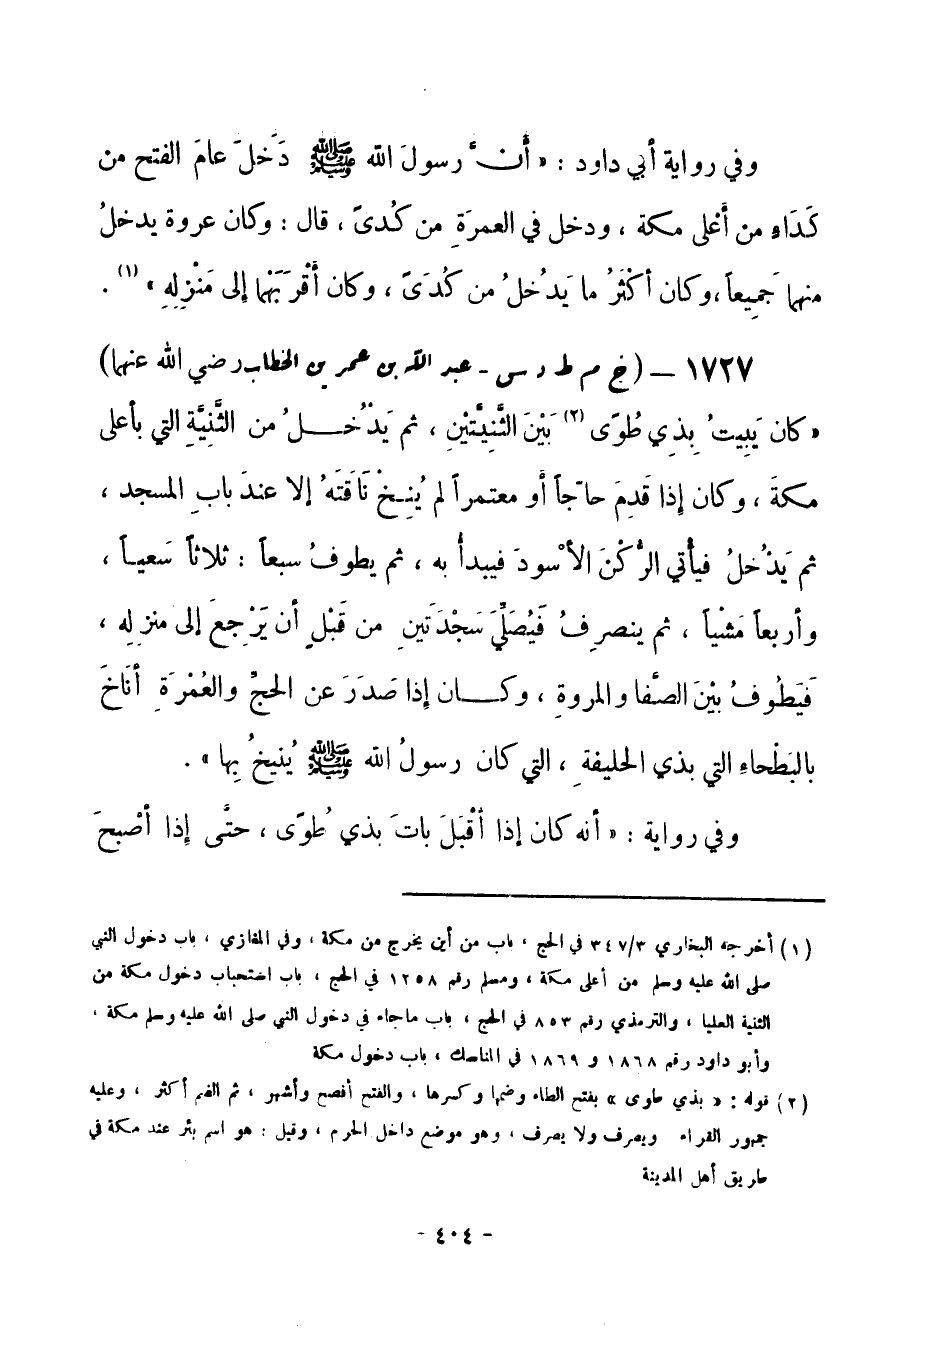 وفي رواية أبي داود : « أنَّ رسولَ الله ﷺ دَخلَ عامَ الفتح من
كَدَاءِ من أعْلى مكة ، ودخل في العمرَةِ من كُدىً ، قال : وكان عروة يدخلُ
منهما جَمِيعاً ،وكان أكْثَرُ ما يَدْخلُ من كُدَىً ، وكان أقْرَبَهُما إلى مَنْزِلِهِ » (١) .
١٧٢٧ – (خ م ط د س - عبد الله بن عمر بن الخطاب رضي الله عنهما)
« كان يَبِيتُ بِذِي طُوًى (٢) بَيْنَ الثَّنِيَّتَيْنِ ، ثم يَدْخُــلُ من الثَّنِيَّةِ التي بأعلى
مكةَ ، وكان إذا قَدِمَ حاجّاً أو معتمراً لم يُنِخْ نَاقَتَهُ إلا عندَ بابِ المسجد ،
ثم يَدْخُلُ فيأتي الرُّكْنَ الأسْودَ فيبدأُ به ، ثم يطوفُ سبعاً : ثلاثاً سَعيـاً ،
وأربعاً مَشْياً ، ثم ينصرِفُ فَيُصَلِّيَ سَجْدَتَينِ من قَبْلِ أن يَرْجِعَ إلى منزِلِهِ ،
فَيَطُوفُ بيْنَ الصَّفا والمروةِ ، وكــان إذا صَدَرَ عن الحجِّ والعُمْرَةِ أنَاخَ
بالبَطْحاءِ التي بذي الحليفةِ ، التي كان رسولُ الله ﷺ يُنيخُ بِها » .
وفي رواية : « أنه كان إذا أقْبَلَ باتَ بذي طُوًى ، حتَّى إذا أصْبحَ
(١) أخرجه البخاري ٣٤٧/٣ في الحج ، باب من أين يخرج من مكة ، وفي المغازي ، باب دخول النبي
صلى الله عليه وسلم من أعلى مكة ، ومسلم رقم ١٢٥٨ في الحج ، باب استحباب دخول مكة من
الثنية العليا ، والترمذي رقم ٨٥٣ في الحج ، باب ماجاء في دخول النبي صلى الله عليه وسلم مكة ،
وأبو داود رقم ١٨٦٨ و ١٨٦٩ في المناسك ، باب دخول مكة
(٢) قوله : « بذي طوى » بفتح الطاء وضمها وكسرها ، والفتح أفصح وأشهر ، ثم الضم أكثر ، وعليه
جمهور القراء ويصرف ولا يصرف ، وهو موضع داخل الحرم ، وقيل : هو اسم بئر عند مكة في
طريق أهل المدينة
- ٤٠٤ -